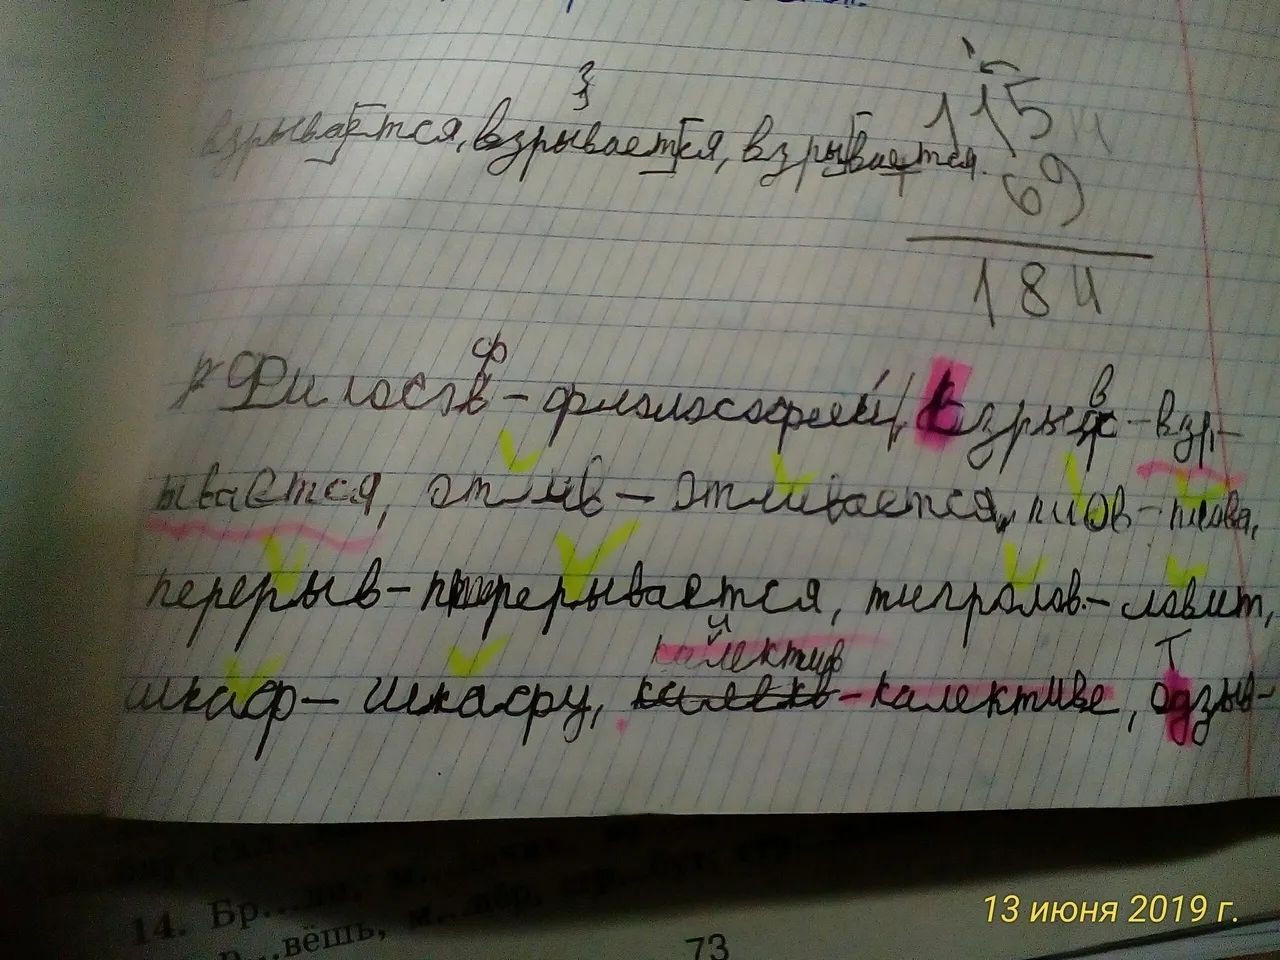 взрывается, взрывается, взрывается.
115
69
184
ф
Филосов – философией, Взрыв – взр-
ывается, отлив – отливается, плов – плова,
перерыв – прерывается, тигролов – ловит,
калектив
шкаф – шкафу, – калективе, одзыв –
т
14. Бр...
...вёшь, м...
73
13 июня 2019 г.